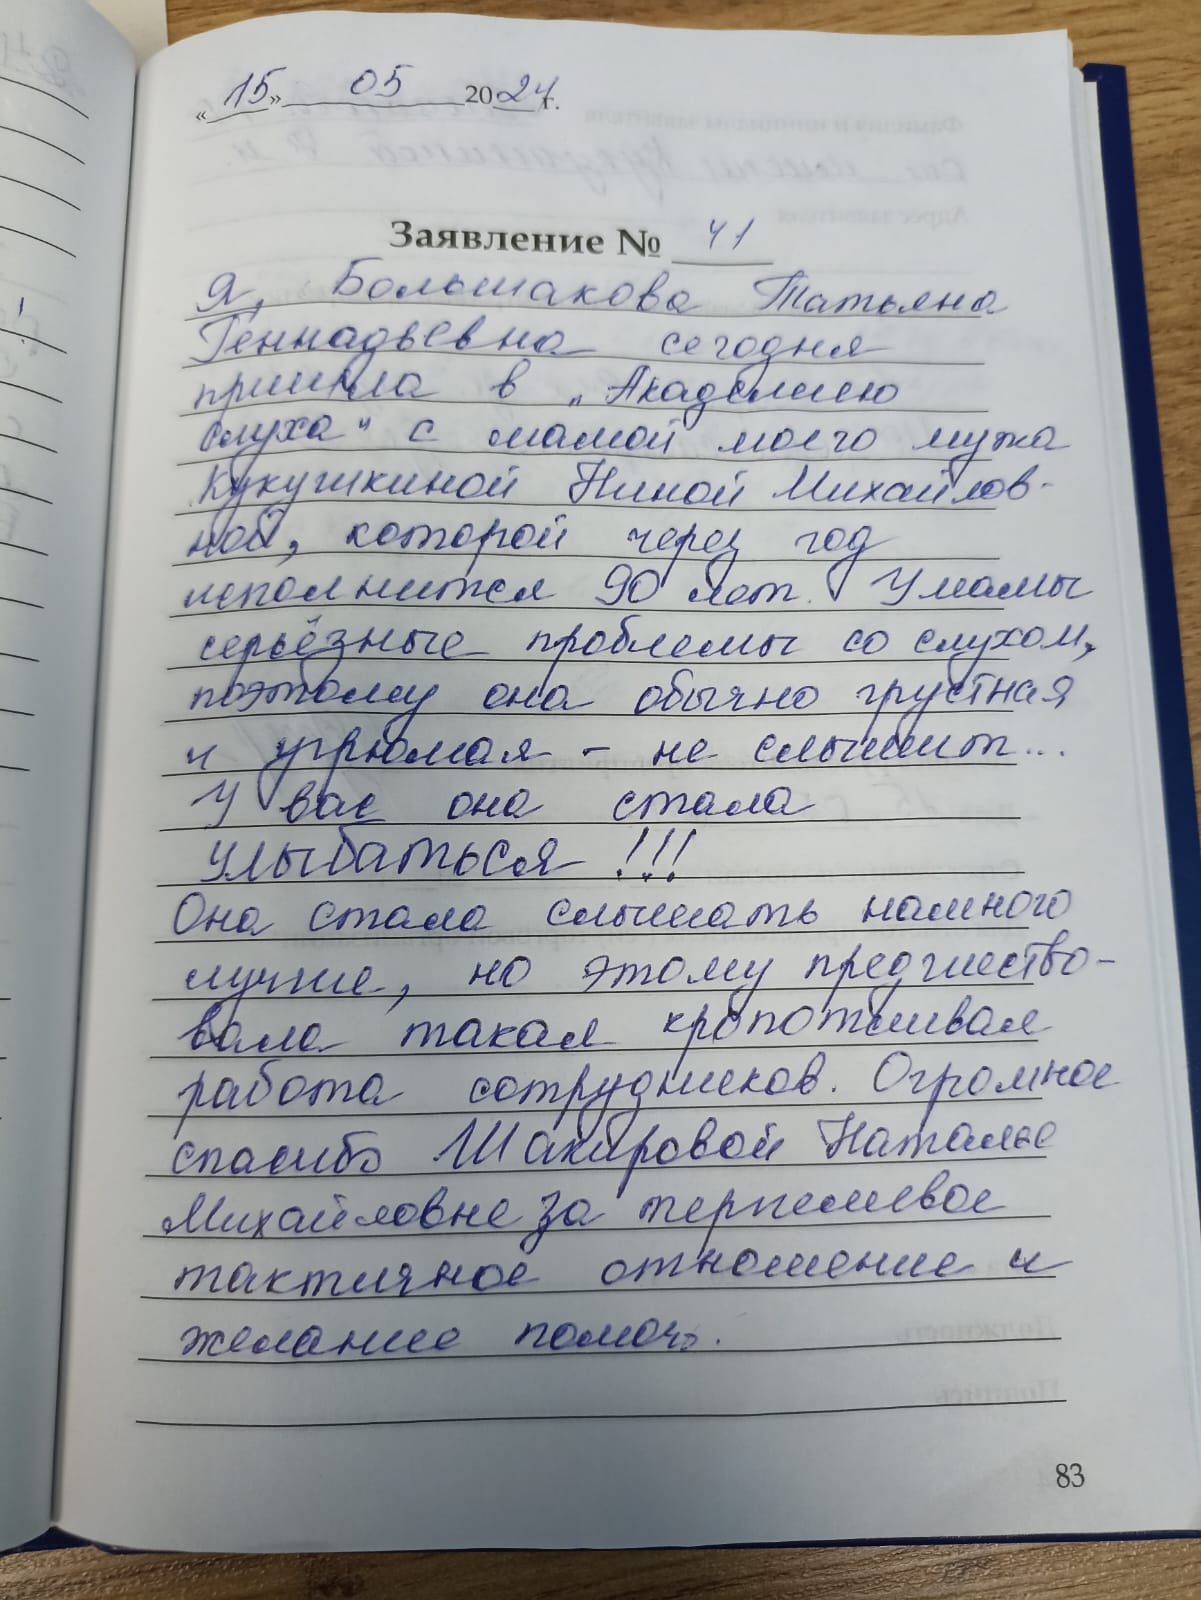 «15» 05 2024 г.
Заявление № 41
Я, Большакова Татьяна
Геннадьевна сегодня
пришла в „Академию
слуха" с мамой моего мужа
Кукушкиной Ниной Михайлов-
ной, которой через год
исполнится 90 лет. У мамы
серьёзные проблемы со слухом,
поэтому она обычно грустная
и угрюмая - не слышит...
У вас она стала
улыбаться!!!
Она стала слышать намного
лучше, но этому предшество-
вала такая кропотливая
работа сотрудников. Огромное
спасибо Шакировой Наталье
Михайловне за терпеливое
тактичное отношение и
желание помочь.
83